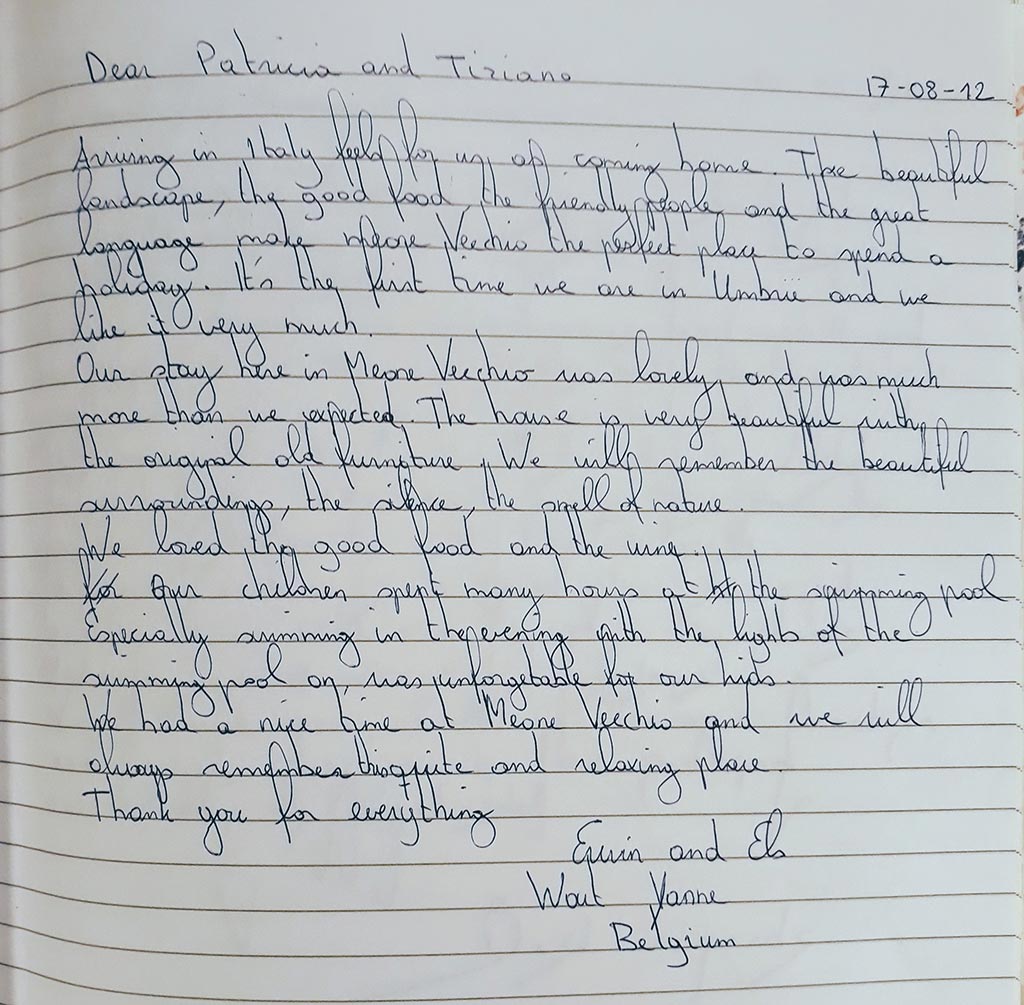 Dear Patricia and Tiziano
17-08-12
Arriving in Italy feels for us, as coming home. The beautiful
landscape, the good food, the friendly people, and the great
language make Meone Vecchio the perfect place to spend a
holiday. It's the first time we are in Umbrië and we
like it very much.
Our stay here in Meone Vecchio was lovely, and was much
more than we expected. The house is very beautiful with
the original old furniture. We will remember the beautiful
surroundings, the silence, the smell of nature.
We loved the good food and the wine.
Our children spent many hours at the swimming pool
Especially swimming in the evening with the lights of the
swimming pool on, was unforgetable for our kids.
We had a nice time at Meone Vecchio and we will
always remember this quite and relaxing place.
Thank you for everything
Erwin and Els
Wout Yanne
Belgium